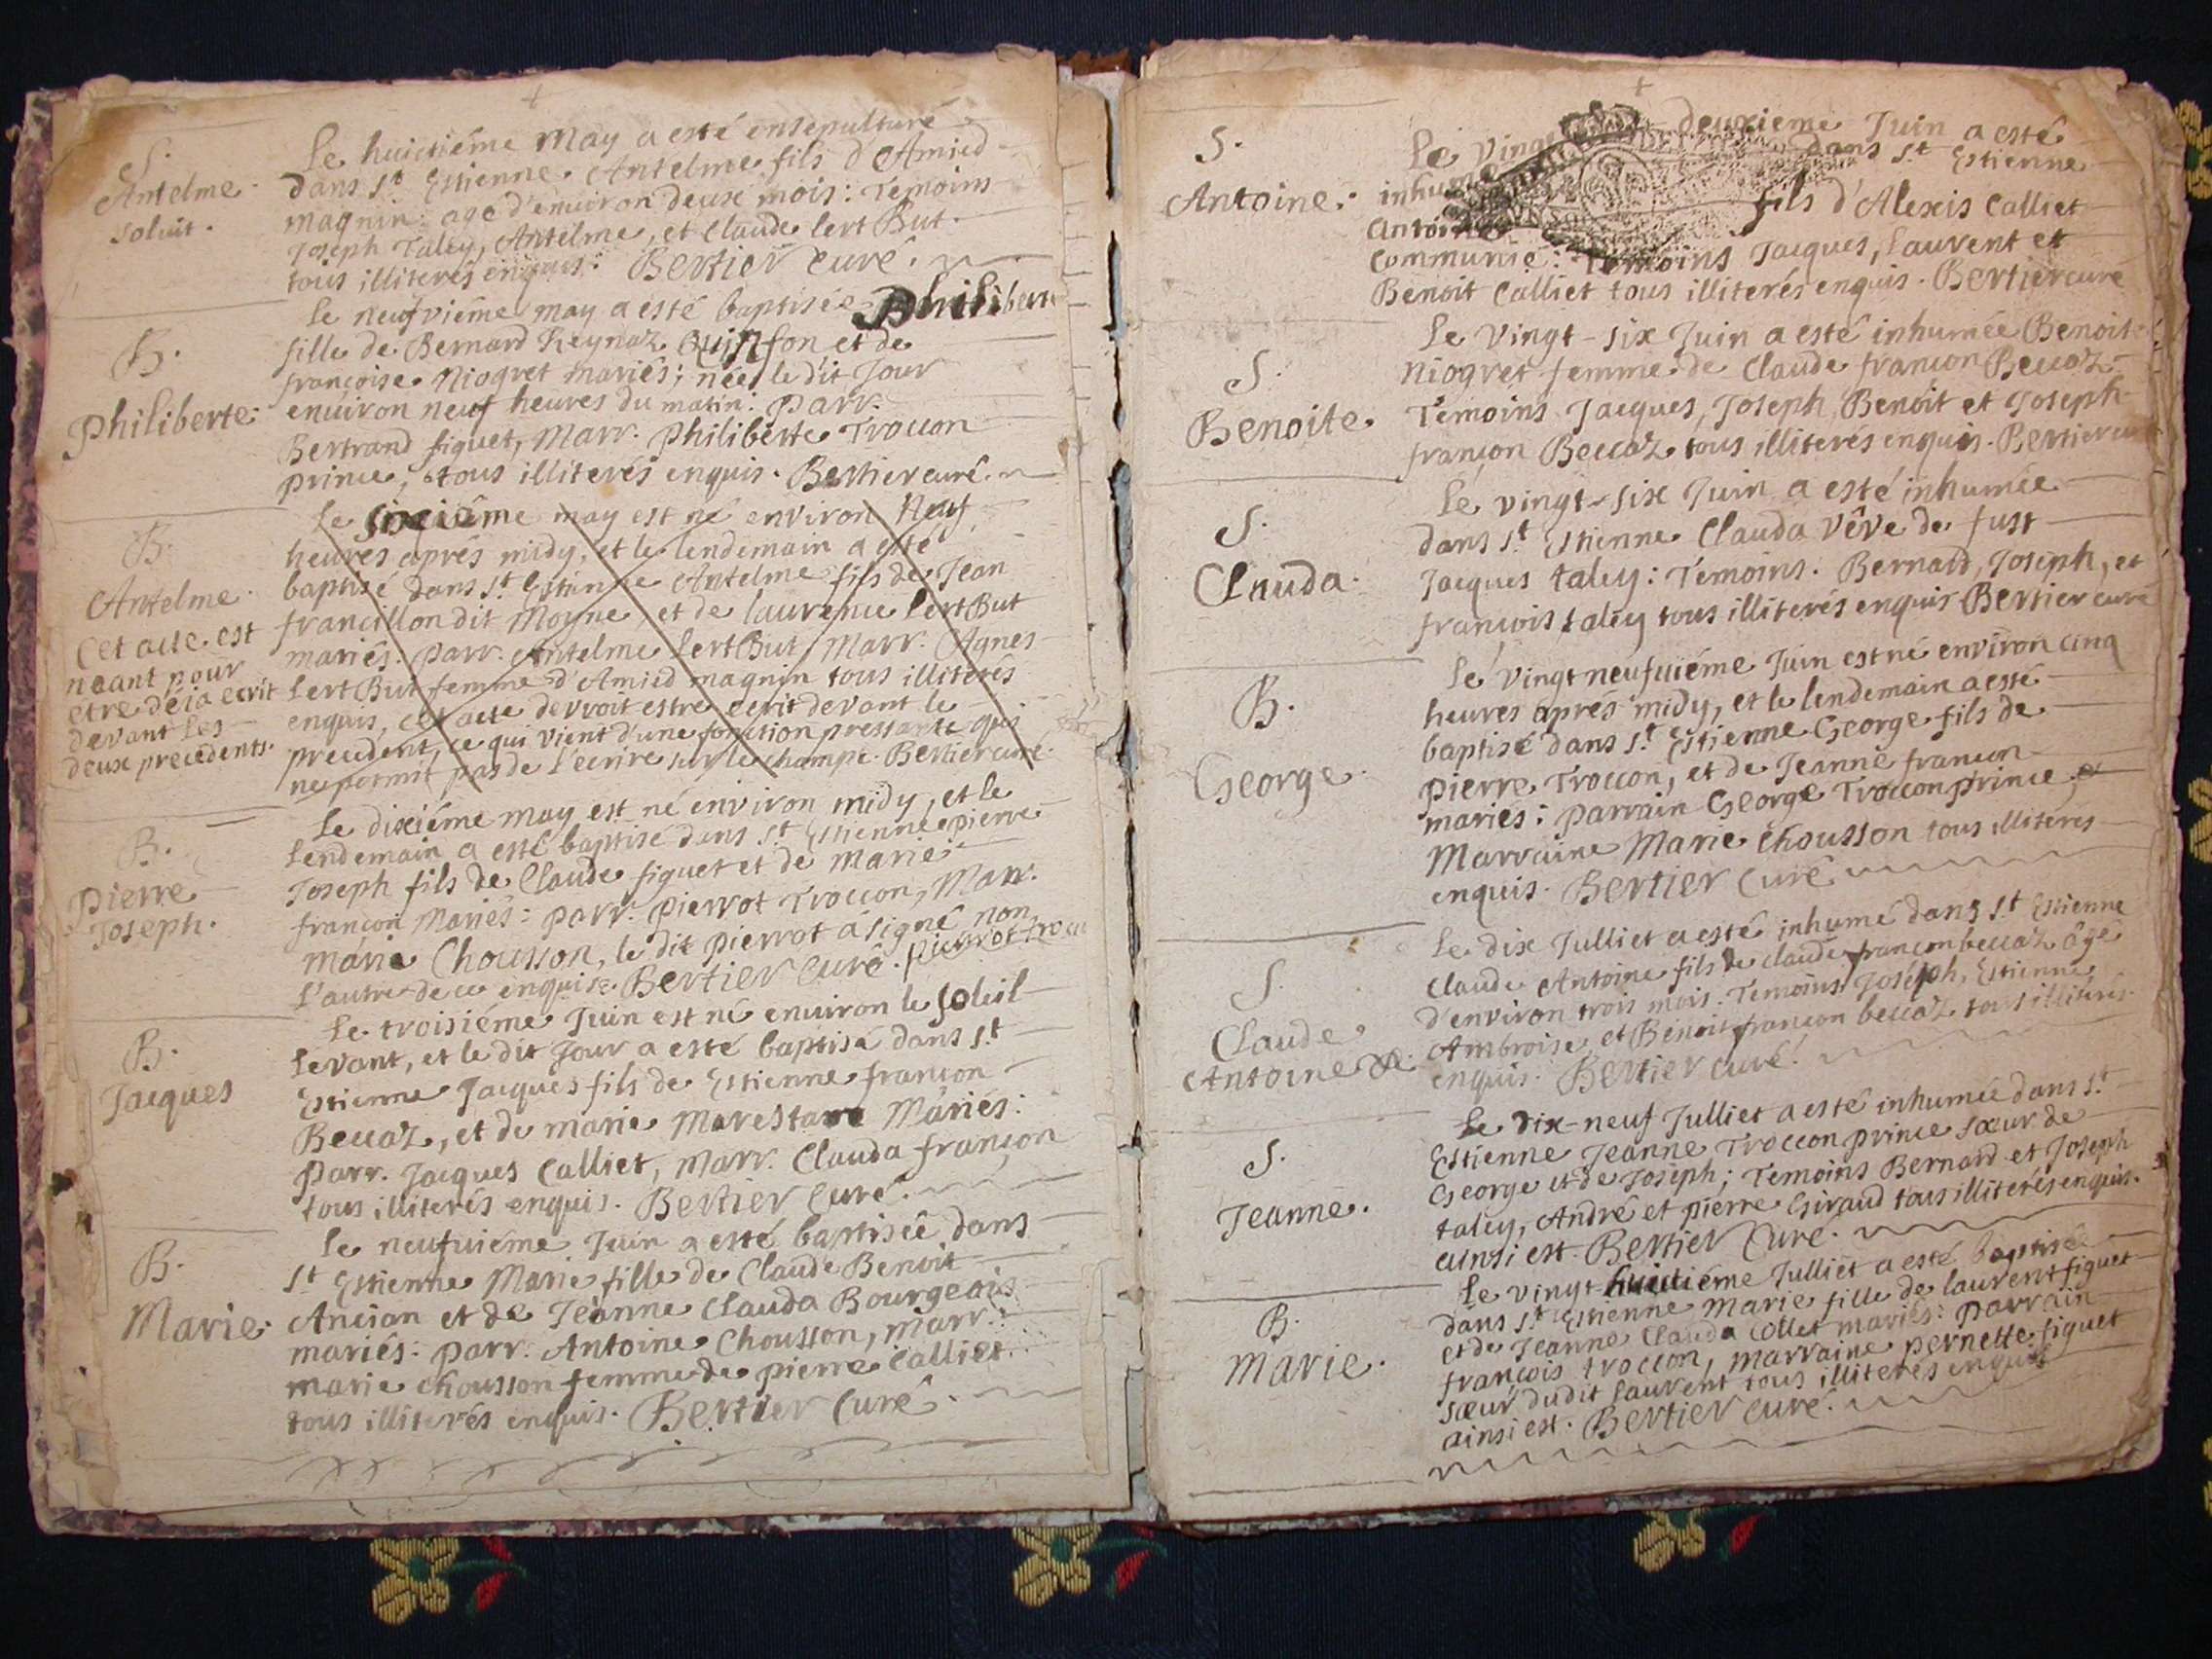 S.
Antelme.
soluit.
Le huictiéme May a esté ensepulturé
dans S.t Estienne Antelme fils d'Amied
magnin: agé d'enuiron deux mois: Temoins
Joseph Taley, Antelme, et Claude Lert But.
tous illiterés enquis. Bertier curé.
B.
Philiberte.
Le neufviéme may a esté baptisée Philiberte
fille de Bernard Reynaz Quinson et de
françoise Niogret mariés; née le dit Jour
enuiron neuf heures du matin: parr.
Bertrand figuet, Marr. Philiberte Troccon
prince, tous illiterés enquis. Bertier curé.
B.
Antelme.
Cet acte est
neant pour
etre déja ecrit
devant les
deux precedents.
Le sixiéme may est né environ Neuf
heures aprés midy, et le lendemain a esté
baptisé dans S.t Estienne Antelme fils de Jean
francillon dit Moyne, et de laurence Lert But
mariés. parr. Antelme Lert But, Marr. Agnes
Lert But femme d'Amied magnin tous illiterés
enquis, cet acte devroit estre ecrit devant le
precedent, ce qui vient d'une fonction pressante qui
ne permit pas de l'ecrire sur le champe. Bertier curé.
B.
Pierre
Joseph.
Le dixiéme may est né environ midy, et le
Lendemain a esté baptisé dans S.t Estienne pierre
Joseph fils de Claude figuet et de marie
françon Mariés: parr. pierrot Troccon, Marr.
marie Chousson, le dit pierrot a signé non
l'autre de ce enquise Bertier curé. pierrot
B.
Jacques
Le troisiéme Juin est né enuiron le soleil
levant, et le dit Jour a esté baptisé dans S.t
Estienne Jacques fils de Estienne françon
Beccaz, et de marie Marestave Mariés:
parr. Jacques Calliet, Marr. Clauda françon
tous illiterés enquis. Bertier curé.
B.
Marie.
Le neufuiéme Juin a esté baptisée dans
S.t Estienne Marie fille de Claude Benoit
Ancian et de Jeanne Clauda Bourgeois
mariés: parr. Antoine Chousson, marr.
marie chousson femme de pierre Calliet
tous illiterés enquis. Bertier Curé.
S.
Antoine.
Le vingt deuxieme Juin a esté
inhumé dans S.t Estienne
Antoine fils d'Alexis Calliet
Communié: Temoins Jacques, Laurent et
Benoit Calliet tous illiterés enquis. Bertier curé
S.
Benoite.
Le vingt-six Juin a esté inhumée Benoite
Niogret femme de Claude françon Beccaz
Temoins Jacques, Joseph, Benoit et Joseph
françon Beccaz tous illiterés enquis. Bertier curé
S.
Clauda.
Le vingt-six Juin a esté inhumée
dans S.t Estienne Clauda vêve de fust
Jacques taley: Temoins. Bernard, Joseph, et
françois taley tous illiterés enquis Bertier curé
B.
George.
Le vingt neufuiéme Juin est né environ cinq
heures aprés midy, et le lendemain a esté
baptisé dans S.t Estienne George fils de
pierre Troccon, et de Jeanne françon
mariés: parrain George Troccon prince, et
Marraine Marie Chousson tous illiterés
enquis. Bertier Curé
S.
Claude
Antoine
Le dix Julliet a esté inhumé dans S.t Estienne
Claude Antoine fils de claude françon beccaz âgé
d'environ trois mois. Temoins Joseph, Estienne
Ambroise, et Benoit françon beccaz tous illiterés
enquis. Bertier curé.
S.
Jeanne.
Le dix-neuf Julliet a esté inhumée dans S.t
Estienne Jeanne Troccon prince sœur de
George et de Joseph; Temoins Bernard et Joseph
taley, André et pierre Giraud tous illiterés enquis.
ainsi est. Bertier Curé.
B.
Marie.
Le vingt huictiéme Julliet a esté baptisée
dans S.t Estienne Marie fille de laurent figuet
et de Jeanne Clauda Collet mariés: parrain
françois troccon, marraine pernette figuet
sœur dudit Laurent tous illiterés enquis
ainsi est. Bertier curé.